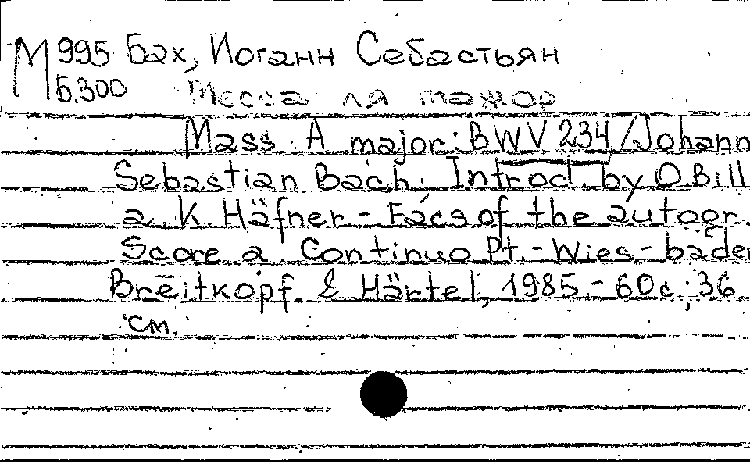 М 995 Бах, Иоганн Себастьян
Б.300 Месса ля мажор
Mass A major: BWV 234/Johann
Sebastian Bach; Introd. by O Bill
a. K Häfner - Facs of the autogr.
Score a Continuo Pt. - Wies-baden
Breitkopf. & Härtel, 1985. - 60 с; 36
см.